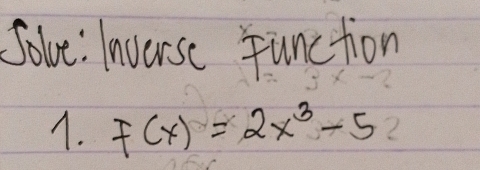 Solve: Inverse Function
1. F(x) = 2x³ - 5